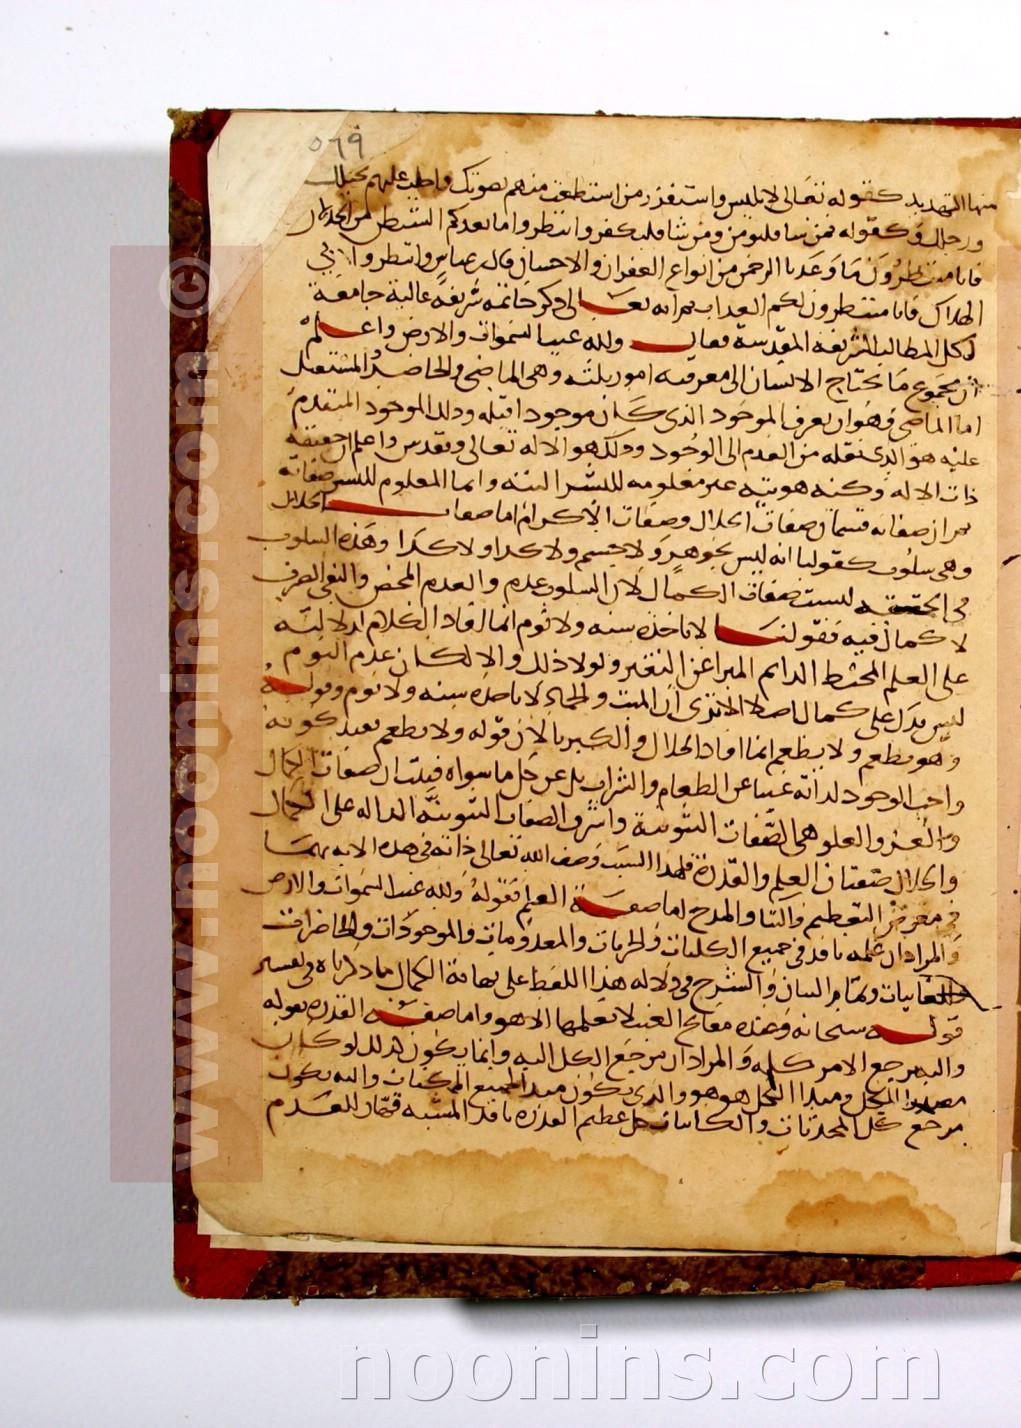 ٥٦٩
منها التهديد كقوله تعالى لابليس واستفزز من استطعت منهم بصوتك واجلب عليهم بخيلك
ورجلك وكقوله فمن شا فليومن ومن شا فليكفر وانتظروا ما يعدكم الشيطن من الخذلان
فانا منتظرون ما وعدنا الرحمن من انواع الغفران والاحسان قال ابن عباس وانتظروا بي
الهلاك فانا منتظرون لكم العذاب ثم انه تعالى ذكر خاتمه شريفه عالية جامعة
لكل المطالب الشريفه المقدسة فقال ولله غيب السموات والارض واعلم
ان مجموع ما يحتاج الانسان الى معرفته امور ثلثه وهي الماضي والحاضر والمستقبل
اما الماضي فهو ان يعرف الموجود الذى كان موجودا قبله وذلك الموجود المتقدم
عليه هو الذى نقله من العدم الى الوجود وذلك هو الاله تعالى وتقدس واعلم ان حقيقة
ذات الاله وكنه هويته غير معلومه للبشر البتة وانما المعلوم للبشر صفاته
ثم ان صفاته قسمان صفات الجلال وصفات الاكرام اما صفات الجلال
وهي سلوب كقولنا انه ليس بجوهر ولا جسم ولا كذا ولا كذا وهذه السلوب
في الحقيقه ليست صفات الكمال لان السلوب عدم والعدم المحض والنفي الصرف
لا كمال فيه فقولنا لا تاخذه سنه ولا نوم انما افاد الكلام لدلالته
على العلم المحيط الدايم المبرا عن التغير ولولا ذلك والا لكان عدم النوم
ليس يدل على كمال اصلا الا ترى ان الميت والجماد لا تاخذه سنه ولا نوم وقوله
وهو يطعم ولا يطعم انما افاد الجلال والكبريا لان قوله ولا يطعم يفيد كونه
واجب الوجود لذاته غنيا عن الطعام والشراب بل عن كل ما سواه فثبت ان صفات الكمال
والعز والعلو هي الصفات الثبوتية واشرف الصفات الثبوتية الداله على الكمال
والجلال صفتان العلم والقدرة فلهذا السبب وصف الله تعالى ذاته في هذه الايه بهما
في معرض التعظيم والثنا والمدح اما صفة العلم فقوله ولله غيب السموات والارض
والمراد ان علمه نافذ في جميع الكليات والجزيات والمعدومات والموجودات والحاضرات
والغايبات وتمام البيان والشرح في دلاله هذا اللفظ على نهاية الكمال ما ذكرناه في تفسير
قوله سبحانه وعنده مفاتح الغيب لا يعلمها الا هو واما صفة القدرة بقوله
واليه يرجع الامر كله والمراد ان مرجع الكل اليه وانما يكون كذلك لو كان
مصدر الكل ومبدا الكل هو هو والذى يكون مبدا لجميع الممكنات واليه يكون
مرجع كل المحدثات والكاينات كان عظيم القدرة نافذ المشيه قهار للعدم
www.noonins.com ©
noonins.com